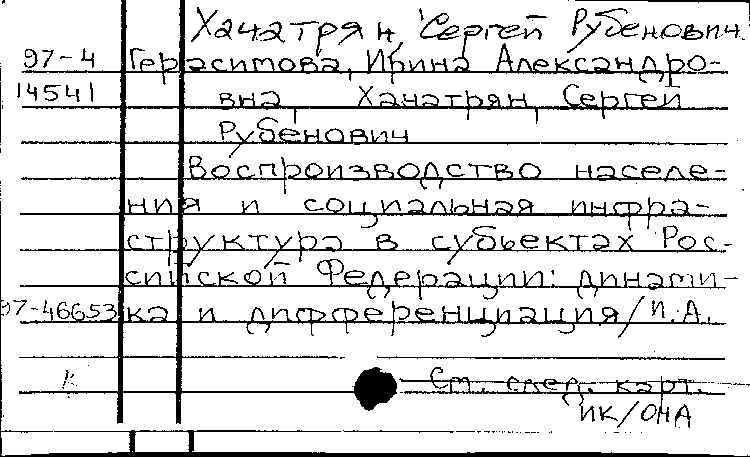 Хачатрян, Сергей Рубенович.
97-4 Герасимова, Ирина Александро-
14541 вна, Хачатрян, Сергей
Рубенович
Воспроизводство населе-
ния и социальная инфра-
структура в субъектах Рос-
сийской Федерации: динами-
97-46653 ка и дифференциация/И.А.
К См. след. карт.
ИК/ОНА